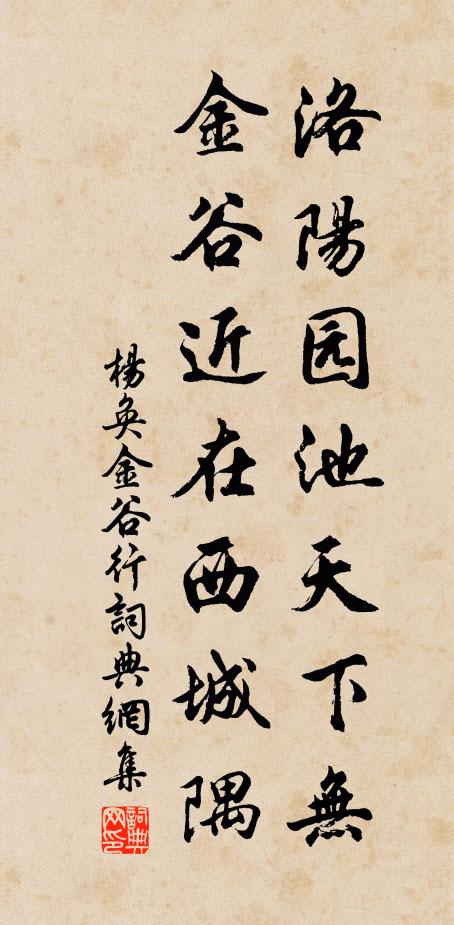 洛陽园池天下無
金谷近在西城隅
楊奐金谷行詞典網集
詞典网印